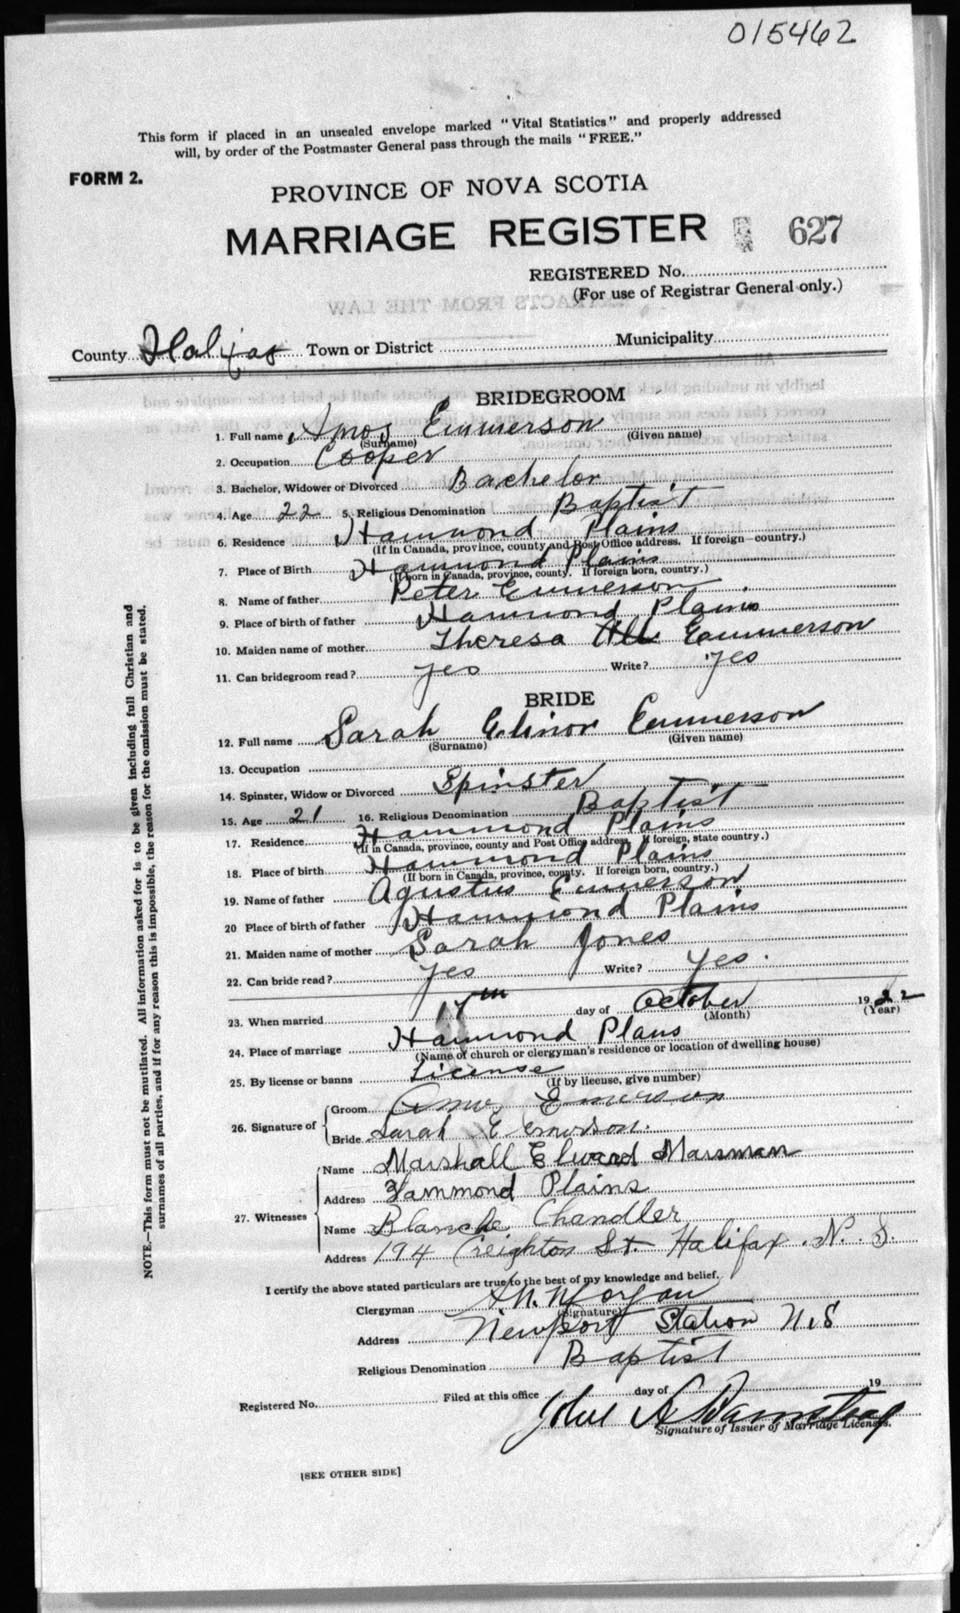 015462
This form if placed in an unsealed envelope marked "Vital Statistics" and properly addressed
will, by order of the Postmaster General pass through the mails "FREE."
FORM 2.
PROVINCE OF NOVA SCOTIA
MARRIAGE REGISTER 627
REGISTERED No.
(For use of Registrar General only.)
County Halifax Town or District Municipality
BRIDEGROOM
1. Full name Amos Emmerson
(Surname) (Given name)
2. Occupation Cooper
3. Bachelor, Widower or Divorced Bachelor
4. Age 22 5. Religious Denomination Baptist
6. Residence Hammond Plains
(If in Canada, province, county and Post Office address. If foreign—country.)
7. Place of Birth Hammond Plains
(If born in Canada, province, county. If foreign born, country.)
8. Name of father Peter Emmerson
9. Place of birth of father Hammond Plains
10. Maiden name of mother Theresa Emmerson
11. Can bridegroom read? yes Write? yes
BRIDE
12. Full name Sarah Elinor Emmerson
(Surname) (Given name)
13. Occupation
14. Spinster, Widow or Divorced Spinster
15. Age 21 16. Religious Denomination Baptist
17. Residence Hammond Plains
(If in Canada, province, county and Post Office address, If foreign, state country.)
18. Place of birth Hammond Plains
(If born in Canada, province, county. If foreign born, country.)
19. Name of father Agustus Emmerson
20 Place of birth of father Hammond Plains
21. Maiden name of mother Sarah Jones
22. Can bride read? yes Write? yes.
23. When married 17th day of October 1922
(Month) (Year)
24. Place of marriage Hammond Plans
(Name of church or clergyman's residence or location of dwelling house)
25. By license or banns License
(If by license, give number)
26. Signature of
Groom Amos Emerson
Bride Sarah E Emerson.
27. Witnesses
Name Marshall Marsman
Address Hammond Plains
Name Blanche Chandler
Address 194 Creighton St. Halifax. N. S.
I certify the above stated particulars are true to the best of my knowledge and belief.
Clergyman Morgan
(Signature)
Address Newport Station N.S
Religious Denomination Baptist
Registered No. Filed at this office day of 19
John A
Signature of Issuer of Marriage Licenses.
[SEE OTHER SIDE]
NOTE.—This form must not be mutilated. All information asked for is to be given including full Christian and
surnames of all parties, and if for any reason this is impossible, the reason for the omission must be stated.